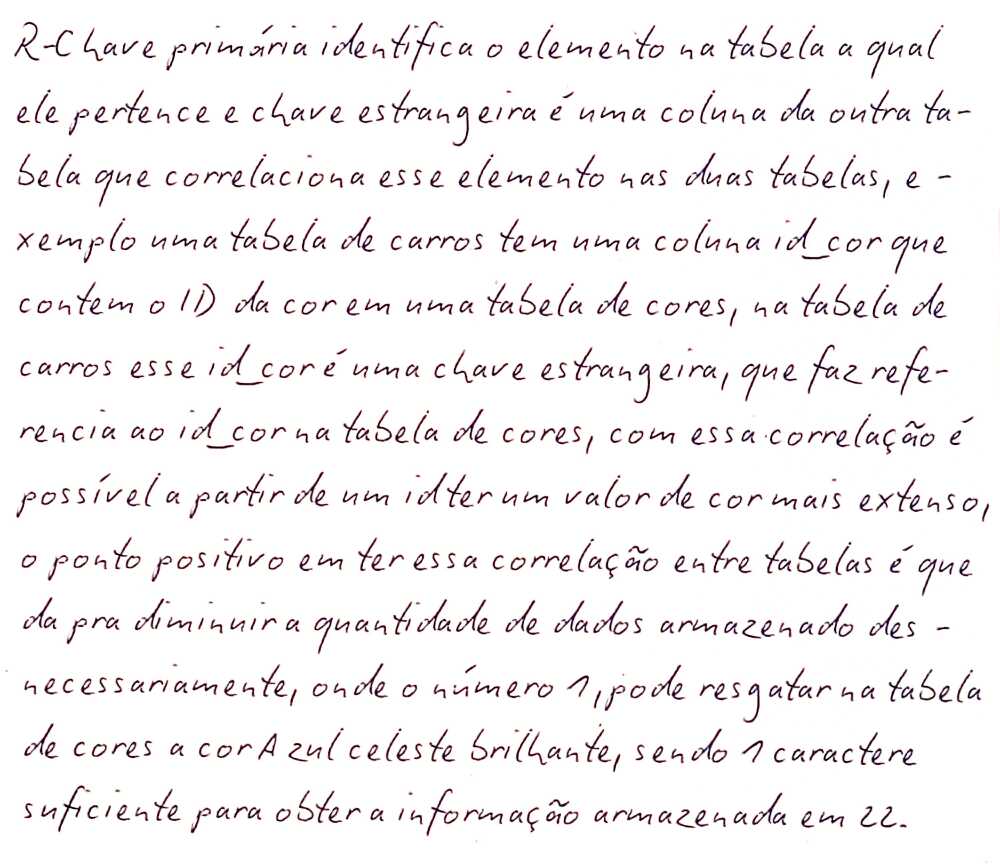 R-Chave primária identifica o elemento na tabela a qual
ele pertence e chave estrangeira é uma coluna da outra ta-
bela que correlaciona esse elemento nas duas tabelas, e-
xemplo uma tabela de carros tem uma coluna id_cor que
contem o ID da cor em uma tabela de cores, na tabela de
carros esse id_cor é uma chave estrangeira, que faz refe-
rencia ao id_cor na tabela de cores, com essa correlação é
possível a partir de um id ter um valor de cor mais extenso,
o ponto positivo em ter essa correlação entre tabelas é que
da pra diminuir a quantidade de dados armazenado des-
necessariamente, onde o número 1, pode resgatar na tabela
de cores a cor Azul celeste brilhante, sendo 1 caractere
suficiente para obter a informação armazenada em 22.